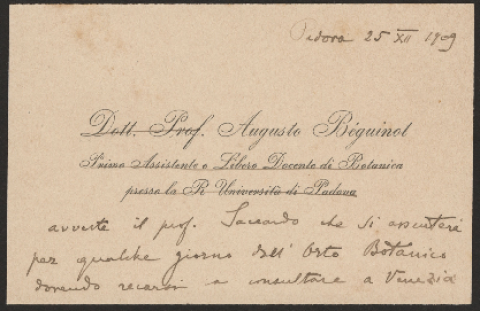 Padova 25 XII 1909
Dott. Prof. Augusto Béguinot
Primo Assistente e Libero Docente di Botanica
presso la R. Università di Padova
avverte il prof. Saccardo che si assenterà
per qualche giorno dall'Orto Botanico
dovendo recarsi a consultare a Venezia